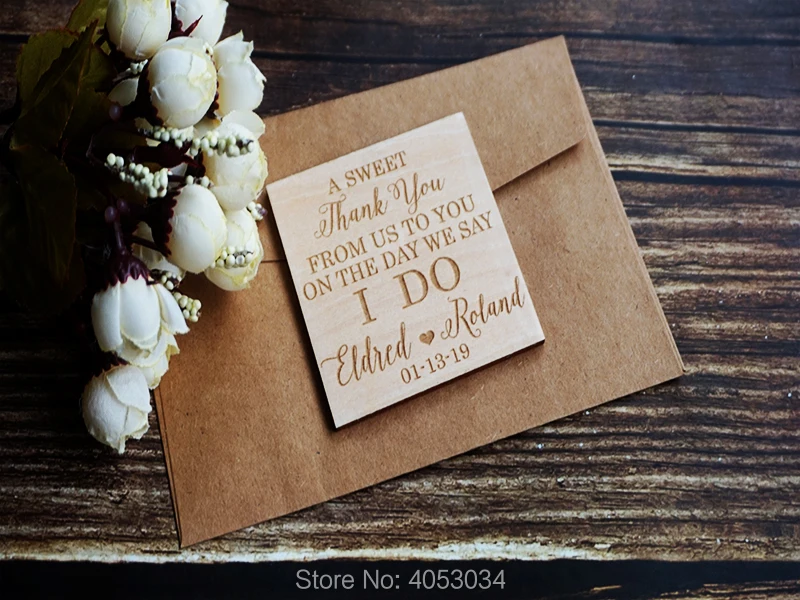 A SWEET
Thank You
FROM US TO YOU
ON THE DAY WE SAY
I DO
Eldred ♥ Roland
01-13-19
Store No: 4053034